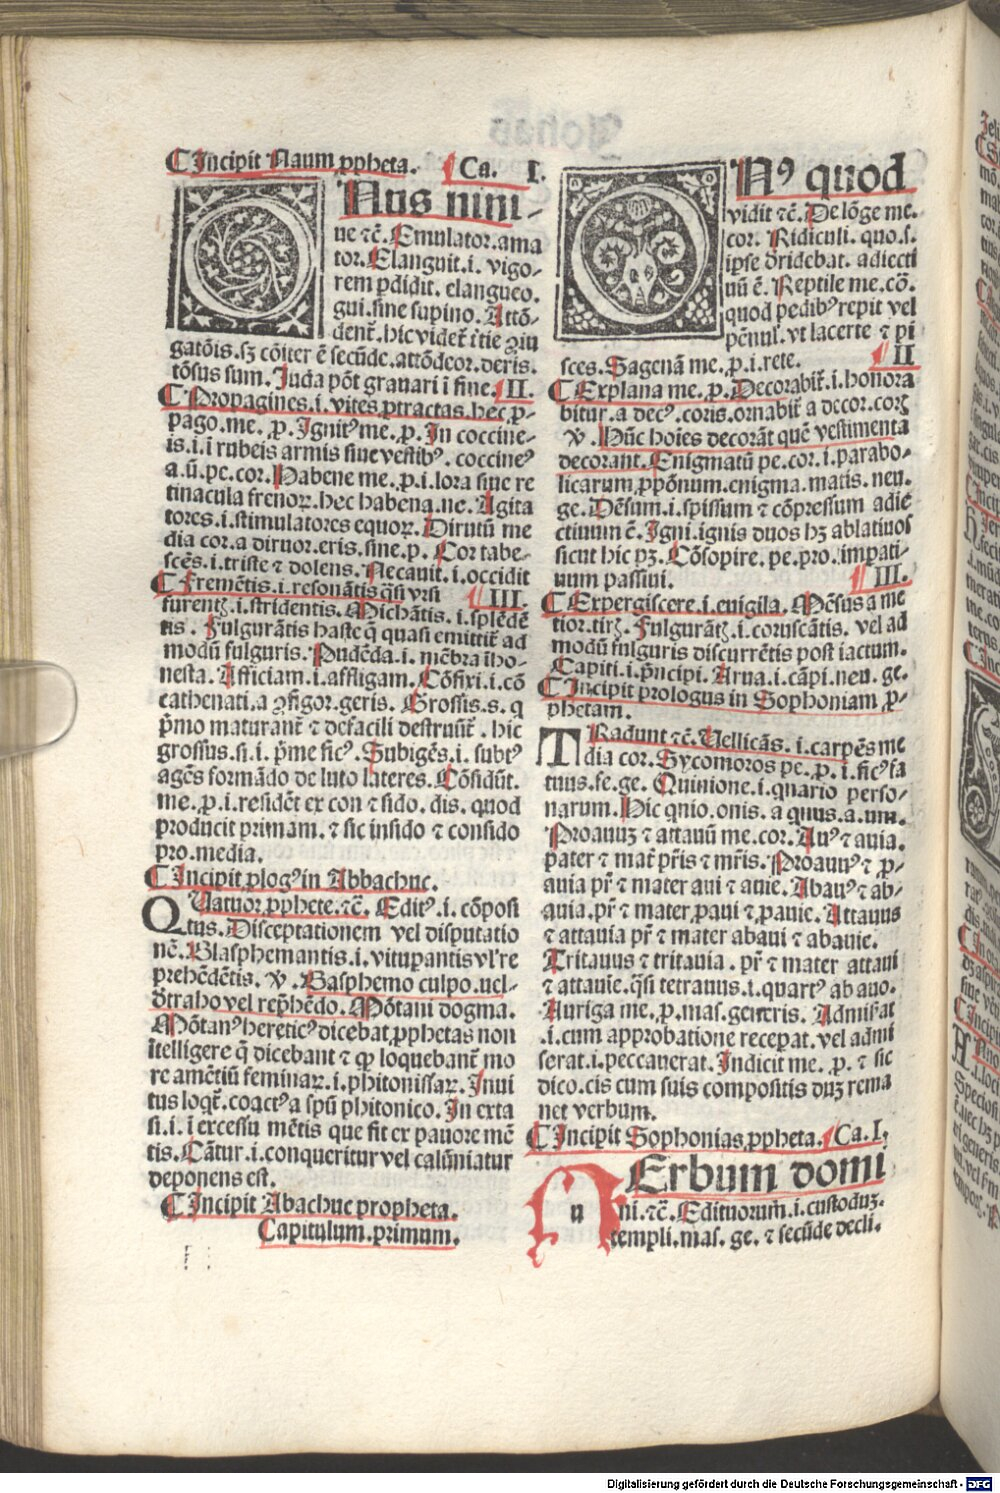 ¶ Incipit Naum ꝓpheta. ¶ Ca. I.
ONus nini-
ue ⁊c̄. Emulator.ama
tor. Elanguit.i. vigo-
rem ꝑdidit. elangueo.
gui.sine supino. Attō-
dent̄.
gatōis.sꝫ cōiter ē secūde.attōdeor.deris.
tōsus sum. Iuda pōt grauari i fine. ¶ II.
¶ Propagines.i.vites ꝓtractas.hec ꝓ-
pago.me.ꝓ.Ignitꝰ me.ꝓ.In coccine-
is.i.i rubeis armis siue vestibꝰ. coccineꝰ
a.ū.pe.cor. Habene me.ꝓ.i.lora siue re
tinacula frenoꝝ.hec habena.ne. Agita
tores.i.stimulatores equoꝝ. Dirutū me
dia cor.a diruor.eris.sine.p. Cor tabe-
scēs.i.triste ⁊ dolens. Necauit.i.occidit
¶ Fremētis.i.resonātis q̄si vrsi ¶ III.
furentꝭ.i.stridentis. Michātis.i.splēdē
tis. Fulgurātis haste q̄ quasi emittit̄ ad
modū fulguris. Pudēda.i.mēbra iho-
nesta. Afficiam.i.affligam. Cōfixi.i.cō
cathenati.a ꝯfigor.geris. Grossis.s.q
p̄mo maturant̄ ⁊ defacili destruūt̄. hic
grossus.si.i.p̄me ficꝰ. Subigēs.i.subtꝰ
agēs formādo de luto lateres. Cōsidūt.
me.ꝓ.i.residēt ex con ⁊ sido.dis.quod
producit primam. ⁊ sic insido ⁊ consido
pro.media.
¶ Incipit ꝓlogꝰ in Abbachuc.
QUatuor ꝓphete.⁊c̄. Editꝰ.i.cōposi
tus. Disceptationem vel disputatio
nē. Blasphemantis.i.vituꝑantis vl're
prehēdētis. ꝟ. Basphemo culpo.uel-
dr̄traho vel rep̄hēdo. Mōtani dogma.
Mōtanꝰ hereticꝰ dicebat ꝓphetas non
ītelligere q̄ dicebant ⁊ ꝙ loquebant̄ mo
re amētiū feminaꝝ.i.phitonissaꝝ. Inui
tus loqt̄.coactꝰ a spū phitonico. In exta
si.i.i excessu mētis que fit ex pauore mē
tis. Cātur.i.conqueritur vel calūniatur
deponens est.
¶ Incipit Abachuc propheta.
Capitulum.primum.
ONꝰ quod
vidit ⁊c̄. De lōge me.
cor. Ridiculi.quo.s.
ipse dr̄idebat.adiecti
uū ē. Reptile me.cō.
quod pedibꝰ repit vel
pēnul'.vt lacerte ⁊ pi
sces. Sagenā me.ꝓ.i.rete. ¶ II
¶ Explana me.ꝓ. Decorabit̄.i.honora
bitur.a decꝰ.coris.ornabit̄ a decor.corꝭ
ꝟ. Hūc hoīes decorāt quē vestimenta
decorant. Enigmatū pe.cor.i.parabo-
licarum ꝓpōnum.enigma.matis.neu.
ge. Dēsum.i.spissum ⁊ cōpressum adie
ctiuum ē. Igni.ignis duos hꝫ ablatiuos
sicut hic pꝫ. Cōsopire.pe.pro.impati-
uum passiui. ¶ III.
¶ Expergiscere.i.euigila. Mēsus a me
tior.tirꝭ. Fulgurātꝭ.i.coruscātis. vel ad
modū fulguris discurrētis post iactum.
Capiti.i.p̄ncipi. Arua.i.cāpi.neu.ge.
¶ Incipit prologus in Sophoniam ꝓ-
phetam.
TRadunt ⁊c̄. Uellicās.i.carpēs me
dia cor. Sycomoros pe.ꝓ.i.ficꝰ fa
tuus.fe.ge. Quinione.i.quario perso-
narum. Hic qnio.onis.a quus.a.um.
Proauuꝫ ⁊ attauū me.cor. Auꝰ ⁊ auia.
pater ⁊ mat̄ pr̄is ⁊ mr̄is. Proauꝰ ⁊ ꝓ-
auia pr̄ ⁊ mater aui ⁊ auie. Abauꝰ ⁊ ab-
auia.pr̄ ⁊ mater ꝓaui ⁊ ꝓauie. Attauus
⁊ attauia pr̄ ⁊ mater abaui ⁊ abauie.
Tritauus ⁊ tritauia. pr̄ ⁊ mater attaui
⁊ attauie.q̄si tetrauus.i.quartꝰ ab auo.
Auriga me.ꝓ.mas.generis. Admiſ̄at
.i.cum approbatione recepat.vel admi
serat.i.peccauerat. Indicit me.ꝓ.⁊ sic
dico.cis cum suis compositis duꝫ rema
net verbum.
¶ Incipit Sophonias ꝓpheta. ¶ Ca.I.
uErbum domi
ni.⁊c̄. Edituorum.i.custoduꝫ.
templi.mas.ge.⁊ secūde decli.
Digitalisierung gefördert durch die Deutsche Forschungsgemeinschaft - DFG